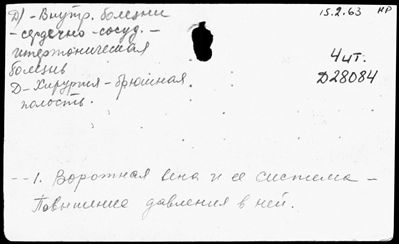 Д) - Внутр. болезни
15.2.63 НР
- сердечно-сосуд. -
гипертоническая
болезнь
4 ит.
Д28084
Д - Хирургия - брюшная
полость.
-- 1. Воротная вена и ее система -
Повышение давления в ней.